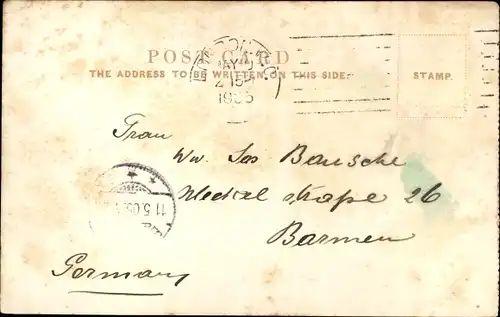 POST CARD
THE ADDRESS TO BE WRITTEN ON THIS SIDE.
STAMP.
LONDON
MAY
2 15
1905
Frau
Ww. Jos Bausche
straße 26
11.5.05
Barmen
Germany